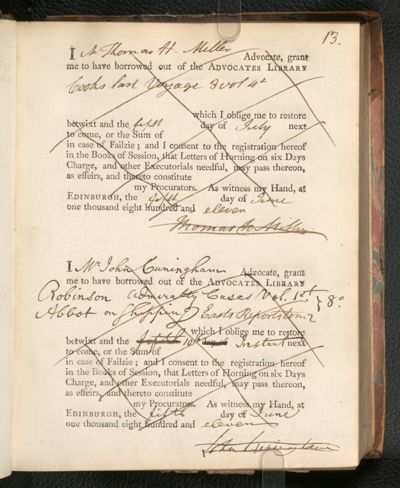 13.
I Mr Thomas H. Miller Advocate, grant
me to have borrowed out of the ADVOCATES LIBRARY
Cooks last Voyage 3 vol 4o
which I oblige me to restore
betwixt and the fifth day of July next
to come, or the Sum of
in case of Failzie; and I consent to the registration hereof
in the Books of Session, that Letters of Horning on six Days
Charge, and other Executorials needful, may pass thereon,
as effeirs, and thereto constitute
my Procurators. As witness my Hand, at
EDINBURGH, the fifth day of June
one thousand eight hundred and eleven
Thomas H Miller
I Mr John Cuningham Advocate, grant
me to have borrowed out of the ADVOCATES LIBRARY
Robinson Admiralty Cases Vol. 1st } 8o
Abbot on Shipping Easts Reports
which I oblige me to restore
betwixt and the 10th day of Instant next
to come, or the Sum of
in case of Failzie; and I consent to the registration hereof
in the Books of Session, that Letters of Horning on six Days
Charge, and other Executorials needful, may pass thereon,
as effeirs, and thereto constitute
my Procurators. As witness my Hand, at
EDINBURGH, the fifth day of June
one thousand eight hundred and eleven
John Cuninghame